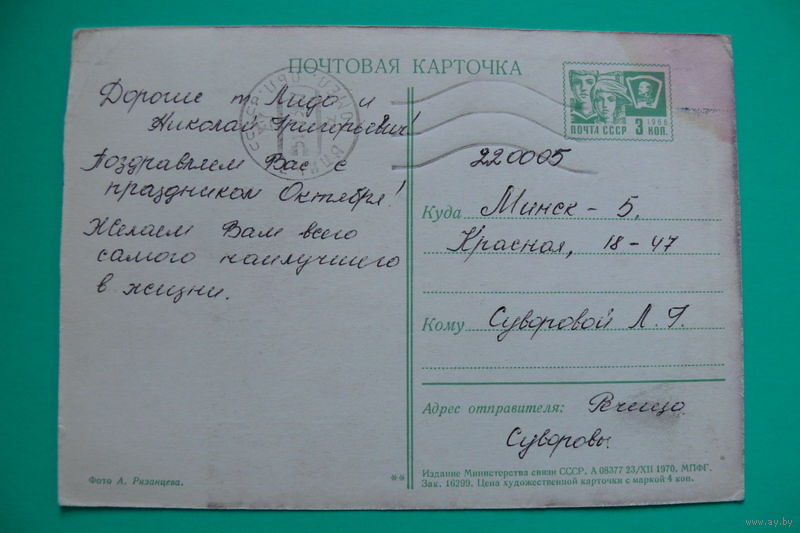 ПОЧТОВАЯ КАРТОЧКА
Дорогие т. Лида и
Николай Григорьевич!
Поздравляем Вас с
праздником Октября!
Желаем Вам всего
самого наилучшего
в жизни.
Фото А. Рязанцева.
**
1966
ПОЧТА СССР 3 КОП.
220005
Куда Минск – 5.
Красная, 18 – 47
Кому Суворовой Л. Г.
Адрес отправителя:
Суворовы.
Издание Министерства связи СССР. А 08377 23/XII 1970. МПФГ.
Зак. 16299. Цена художественной карточки с маркой 4 коп.
www.ay.by